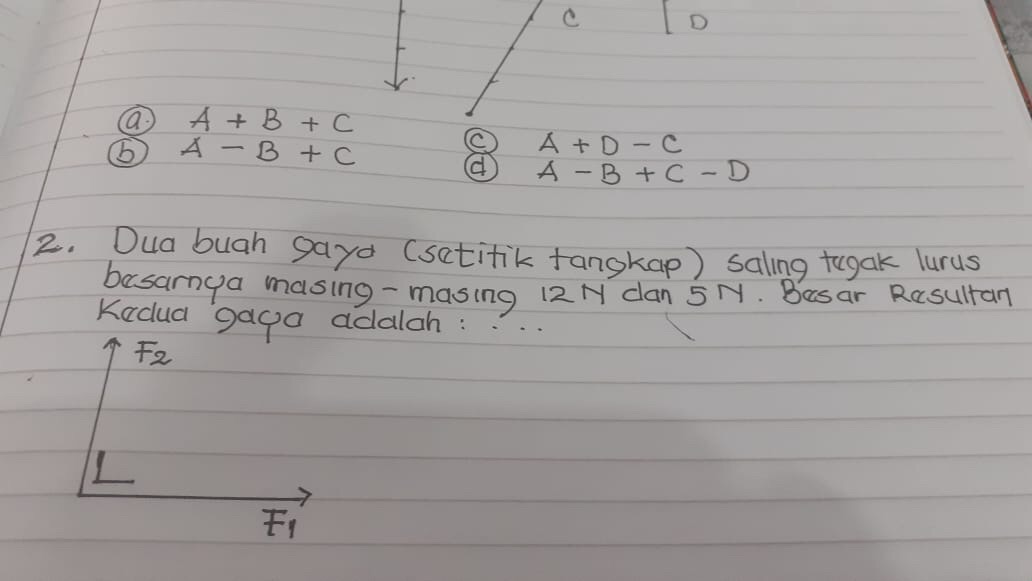 C
D
a. A + B + C
b A - B + C
c A + D - C
d A - B + C - D
2. Dua buah gaya (setitik tangkap) saling tegak lurus
besarnya masing-masing 12 N dan 5 N. Besar Resultan
Kedua gaya adalah : ....
F2
F1